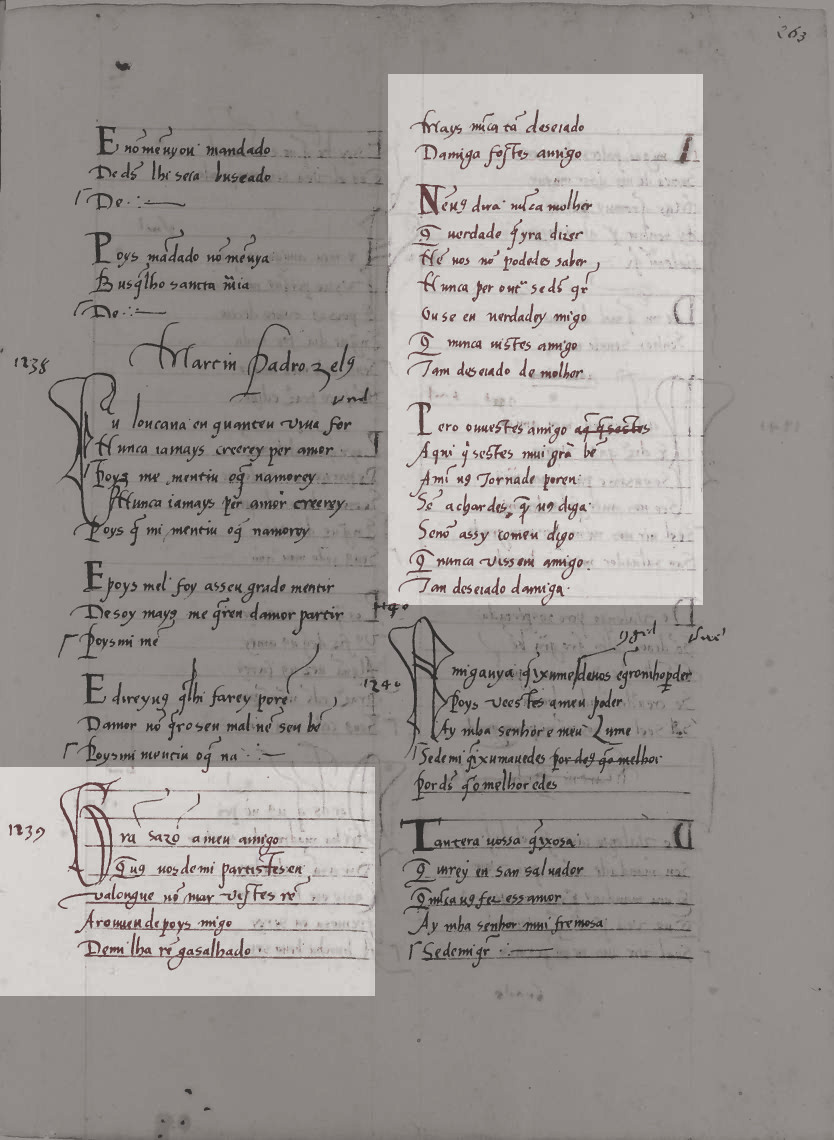 263
E nõ mẽuyou mandado
De ds̃ lhi seia buscado
De
Poys mãdado nõ mẽuya
Busq̃lho sancta m̃ia
De
Martin Padrozelꝯ
1238
Fu loucana en quanteu viua for
Nunca iamays creerey per amor
Poys me mentiu oq̃ namorey
Nunca iamays per amor creerey
Poys q̃ mi mentiu oq̃ namorey
E poys mel foy asseu grado mentir
Desoy mays me q̃ren damor partir
Poysmi me
E direyuꝯ q̃lhi farey porẽ
Damor nõ q̃ro seu mal nẽ seu bẽ
Poysmi mentiu oq̃ na
1239
ra sazõ a meu amigo
Q̃ uꝯ uos de mi partistes en
valongue nõ mar vistes rẽ
Arouuen depoys migo
Demi lha rẽ gasalhado
Mays nũca tã deseiado
Damiga fostes amigo
Nẽuꝯ dira nũca molher
q̃ uerdade q̃yra dizer
Nẽ uos nõ podedes saber
Nunca per outr se ds̃ q̃r
Ou se eu uerdadey migo
Q̃ nunca uistes amigo
Tam deseiado de molher
Pero ouuestes amigo
Aqui q̃ sestes mui grã bẽ
Ami uꝯ Tornade poren
Se achardes q̃ uꝯ diga
Senõ assy comeu digo
Q̃ nunca vissem amigo
Tam deseiado damiga
1240
1240
Amigauya q̃ixume deuos
Poys ueestes a meu poder
Ay mha senhor e meu Lume
Sedemi q̃ixumauedes por deꝯ q̃o melhor
Por ds̃ q̃o melhoredes
Tantera uossa q̃ixosa
Q̃ uirey en san saluador
Q̃ nũca uꝯ fez ess amor
Ay mha senhor mui fremosa
Sedemi q̃r